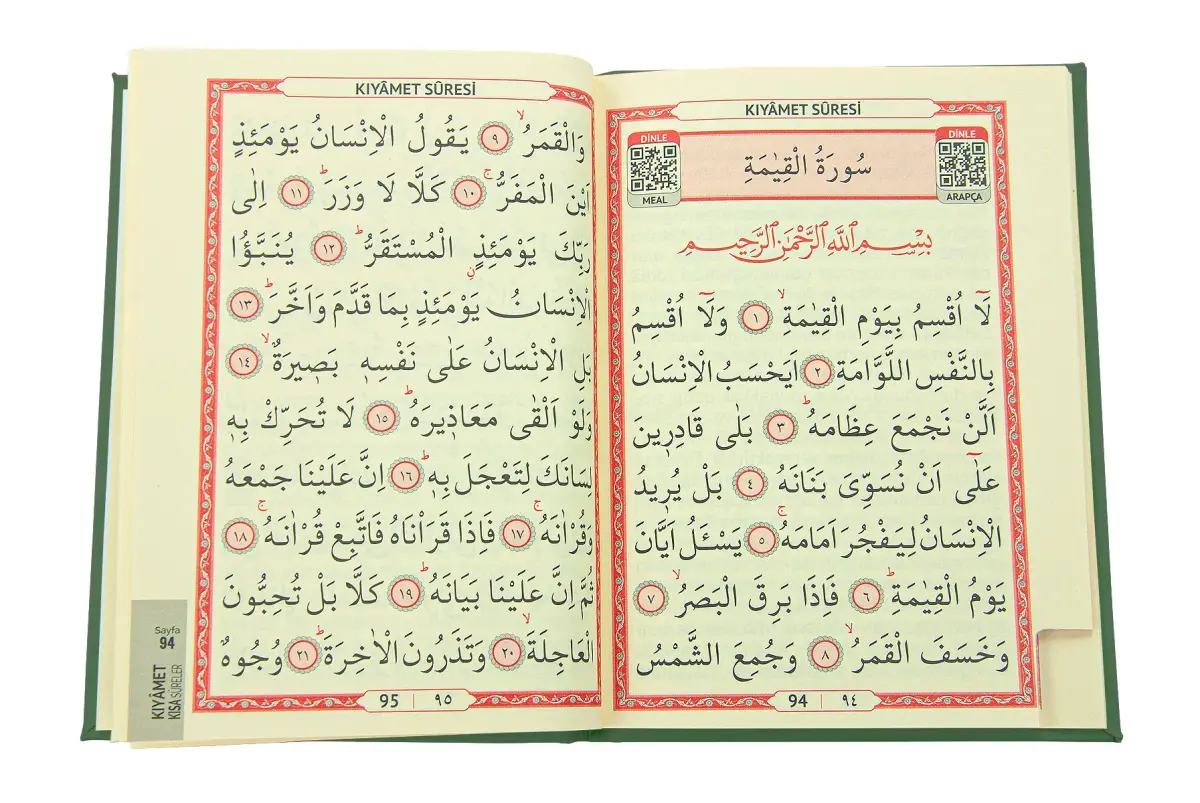 KIYÂMET SÛRESİ
DİNLE
MEAL
DİNLE
ARAPÇA
سُورَةُ الْقِيٰمَةِ
بِسْمِ اللّٰهِ الرَّحْمٰنِ الرَّحٖيمِ
لَٓا اُقْسِمُ بِيَوْمِ الْقِيٰمَةِۙ ﴿١﴾ وَلَٓا اُقْسِمُ
بِالنَّفْسِ اللَّوَّامَةِ ﴿٢﴾ اَيَحْسَبُ الْاِنْسَانُ
اَلَّنْ نَجْمَعَ عِظَامَهُۜ ﴿٣﴾ بَلٰى قَادِرٖينَ
عَلٰٓى اَنْ نُسَوِّيَ بَنَانَهُ ﴿٤﴾ بَلْ يُرٖيدُ
الْاِنْسَانُ لِيَفْجُرَ اَمَامَهُۚ ﴿٥﴾ يَسْـَٔلُ اَيَّانَ
يَوْمُ الْقِيٰمَةِۜ ﴿٦﴾ فَاِذَا بَرِقَ الْبَصَرُۙ ﴿٧﴾
وَخَسَفَ الْقَمَرُۙ ﴿٨﴾ وَجُمِعَ الشَّمْسُ
94 | ٩٤
KIYÂMET SÛRESİ
وَالْقَمَرُۙ ﴿٩﴾ يَقُولُ الْاِنْسَانُ يَوْمَئِذٍ
اَيْنَ الْمَفَرُّۚ ﴿١٠﴾ كَلَّا لَا وَزَرَۜ ﴿١١﴾ اِلٰى
رَبِّكَ يَوْمَئِذٍ الْمُسْتَقَرُّۜ ﴿١٢﴾ يُنَبَّؤُا
الْاِنْسَانُ يَوْمَئِذٍ بِمَا قَدَّمَ وَاَخَّرَۜ ﴿١٣﴾
بَلِ الْاِنْسَانُ عَلٰى نَفْسِهٖ بَصٖيرَةٌۙ ﴿١٤﴾
وَلَوْ اَلْقٰى مَعَاذٖيرَهُۜ ﴿١٥﴾ لَا تُحَرِّكْ بِهٖ
لِسَانَكَ لِتَعْجَلَ بِهٖۜ ﴿١٦﴾ اِنَّ عَلَيْنَا جَمْعَهُ
وَقُرْاٰنَهُۚ ﴿١٧﴾ فَاِذَا قَرَاْنَاهُ فَاتَّبِعْ قُرْاٰنَهُۚ ﴿١٨﴾
ثُمَّ اِنَّ عَلَيْنَا بَيَانَهُۜ ﴿١٩﴾ كَلَّا بَلْ تُحِبُّونَ
الْعَاجِلَةَۙ ﴿٢٠﴾ وَتَذَرُونَ الْاٰخِرَةَۜ ﴿٢١﴾ وُجُوهٌ
95 | ٩٥
Sayfa
94
KIYÂMET
KISA SÛRELER